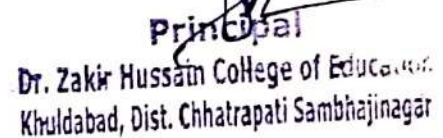 Principal
Dr. Zakir Hussain College of Education.
Khuldabad, Dist. Chhatrapati Sambhajinagar